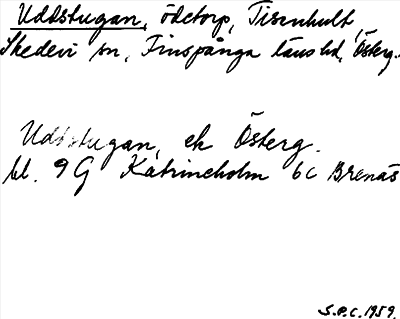 Uddstugan, ödetorp, Tisenhult,
Skedevi sn, Finspånga läns hd, Österg.
Uddstugan, ek Österg.
bl. 9 G Katrineholm 6c Brenäs
S.P.C. 1959.